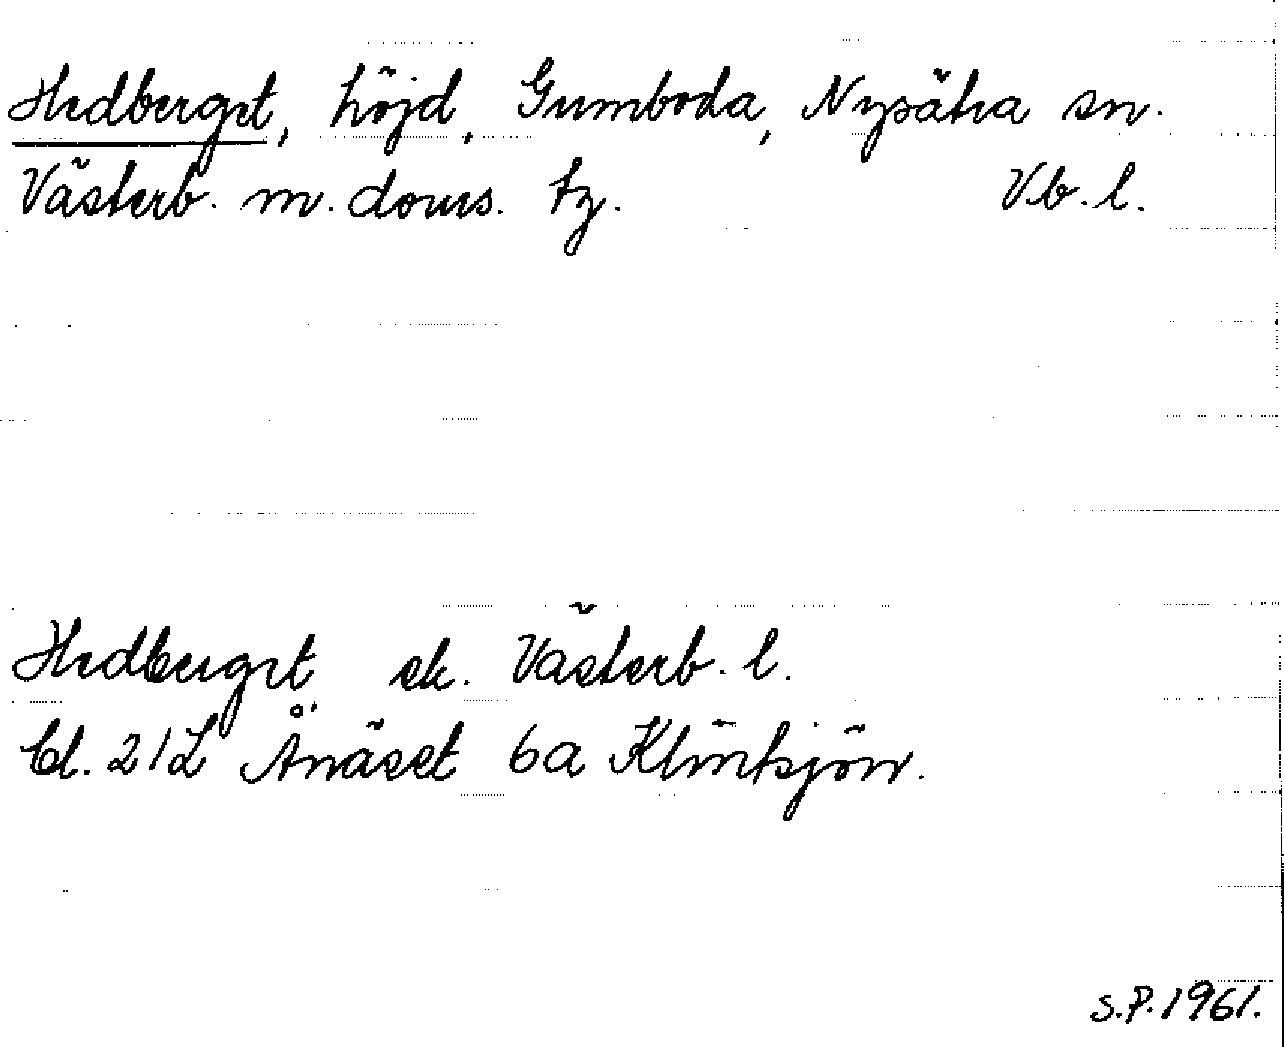 Hedberget, höjd, Gumboda, Nysätra sn.
Västerb. m. doms. tg. Vb. l.
Hedberget ek. Västerb. l.
Bl. 21L Ånäset 6a Klintsjön.
S.P. 1961.